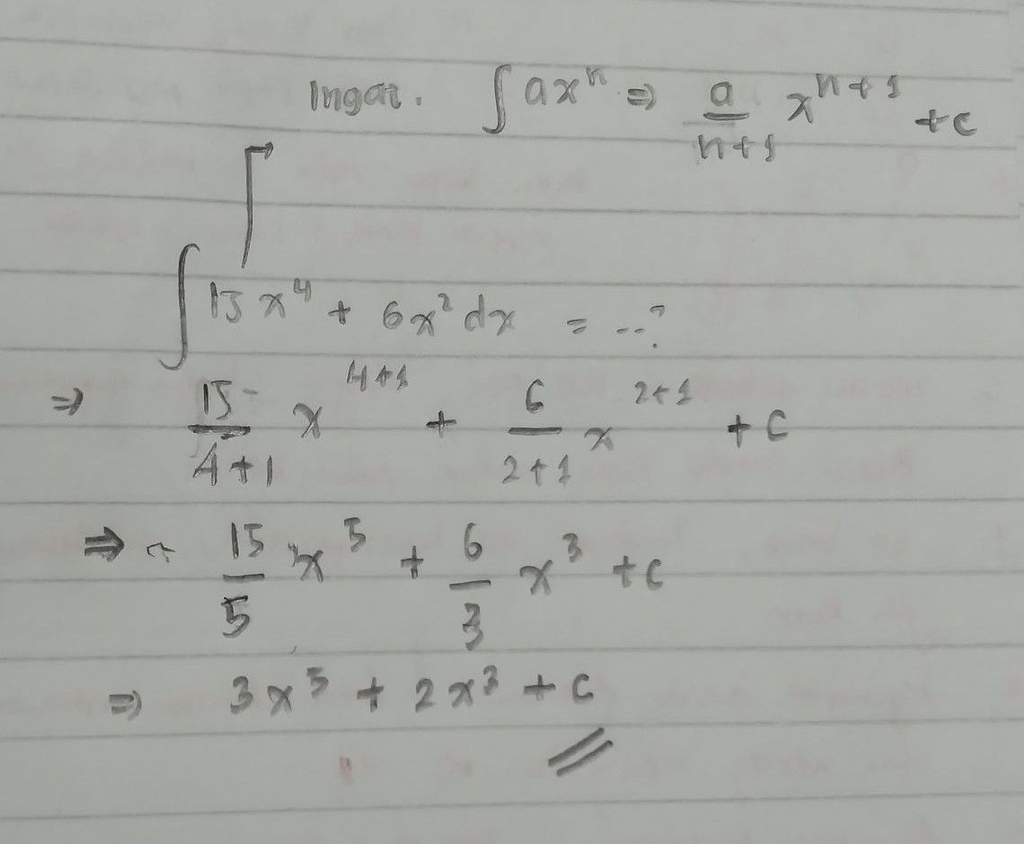 Ingat. ∫ axⁿ ⇒ a/(n+1) xⁿ⁺¹ + c
∫ 15x⁴ + 6x² dx = ...?
⇒ 15/(4+1) x⁴⁺¹ + 6/(2+1) x²⁺¹ + c
⇒ 15/5 x⁵ + 6/3 x³ + c
⇒ 3x⁵ + 2x³ + c